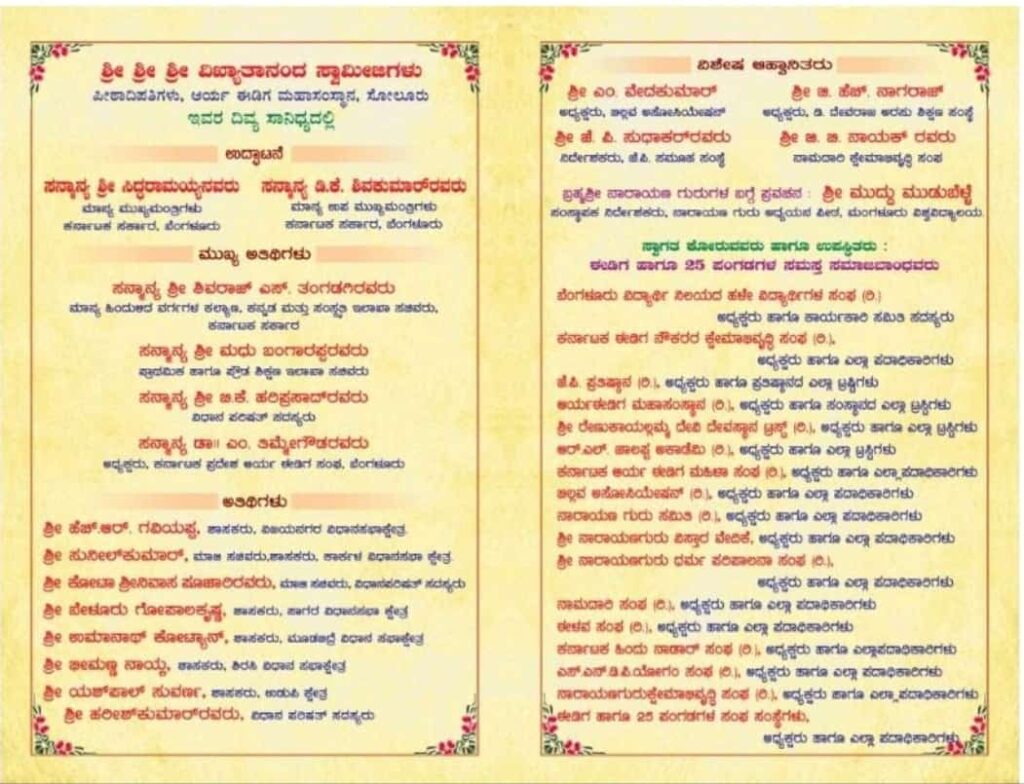 ಶ್ರೀ ಶ್ರೀ ಶ್ರೀ ವಿಖ್ಯಾತಾನಂದ ಸ್ವಾಮೀಜಿಗಳು
ಪೀಠಾಧಿಪತಿಗಳು, ಆರ್ಯ ಈಡಿಗ ಮಹಾಸಂಸ್ಥಾನ, ಸೋಲೂರು
ಇವರ ದಿವ್ಯ ಸಾನಿಧ್ಯದಲ್ಲಿ
ಉದ್ಘಾಟನೆ
ಸನ್ಮಾನ್ಯ ಶ್ರೀ ಸಿದ್ಧರಾಮಯ್ಯನವರು
ಮಾನ್ಯ ಮುಖ್ಯಮಂತ್ರಿಗಳು
ಕರ್ನಾಟಕ ಸರ್ಕಾರ, ಬೆಂಗಳೂರು
ಸನ್ಮಾನ್ಯ ಡಿ.ಕೆ. ಶಿವಕುಮಾರ್‌ರವರು
ಮಾನ್ಯ ಉಪ ಮುಖ್ಯಮಂತ್ರಿಗಳು
ಕರ್ನಾಟಕ ಸರ್ಕಾರ, ಬೆಂಗಳೂರು
ಮುಖ್ಯ ಅತಿಥಿಗಳು
ಸನ್ಮಾನ್ಯ ಶ್ರೀ ಶಿವರಾಜ್ ಎಸ್. ತಂಗಡಗಿರವರು
ಮಾನ್ಯ ಹಿಂದುಳಿದ ವರ್ಗಗಳ ಕಲ್ಯಾಣ, ಕನ್ನಡ ಮತ್ತು ಸಂಸ್ಕೃತಿ ಇಲಾಖಾ ಸಚಿವರು,
ಕರ್ನಾಟಕ ಸರ್ಕಾರ
ಸನ್ಮಾನ್ಯ ಶ್ರೀ ಮಧು ಬಂಗಾರಪ್ಪರವರು
ಪ್ರಾಥಮಿಕ ಹಾಗೂ ಪ್ರೌಢ ಶಿಕ್ಷಣ ಇಲಾಖಾ ಸಚಿವರು
ಸನ್ಮಾನ್ಯ ಶ್ರೀ ಬಿ.ಕೆ. ಹರಿಪ್ರಸಾದ್‌ರವರು
ವಿಧಾನ ಪರಿಷತ್ ಸದಸ್ಯರು
ಸನ್ಮಾನ್ಯ ಡಾ॥ ಎಂ. ತಿಮ್ಮೇಗೌಡರವರು
ಅಧ್ಯಕ್ಷರು, ಕರ್ನಾಟಕ ಪ್ರದೇಶ ಆರ್ಯ ಈಡಿಗ ಸಂಘ, ಬೆಂಗಳೂರು
ಅತಿಥಿಗಳು
ಶ್ರೀ ಹೆಚ್.ಆರ್. ಗವಿಯಪ್ಪ, ಶಾಸಕರು, ವಿಜಯನಗರ ವಿಧಾನಸಭಾಕ್ಷೇತ್ರ
ಶ್ರೀ ಸುನೀಲ್‌ಕುಮಾರ್, ಮಾಜಿ ಸಚಿವರು,ಶಾಸಕರು, ಕಾರ್ಕಳ ವಿಧಾನಸಭಾ ಕ್ಷೇತ್ರ
ಶ್ರೀ ಕೋಟಾ ಶ್ರೀನಿವಾಸ ಪೂಜಾರಿರವರು, ಮಾಜಿ ಸಚಿವರು, ವಿಧಾನಪರಿಷತ್ ಸದಸ್ಯರು
ಶ್ರೀ ಬೇಳೂರು ಗೋಪಾಲಕೃಷ್ಣ, ಶಾಸಕರು, ಸಾಗರ ವಿಧಾನಸಭಾ ಕ್ಷೇತ್ರ
ಶ್ರೀ ಉಮಾನಾಥ್ ಕೋಟ್ಯಾನ್, ಶಾಸಕರು, ಮೂಡಬಿದ್ರೆ ವಿಧಾನ ಸಭಾಕ್ಷೇತ್ರ
ಶ್ರೀ ಭೀಮಣ್ಣ ನಾಯ್ಕ, ಶಾಸಕರು, ಶಿರಸಿ ವಿಧಾನ ಸಭಾಕ್ಷೇತ್ರ
ಶ್ರೀ ಯಶ್‌ಪಾಲ್ ಸುವರ್ಣ, ಶಾಸಕರು, ಉಡುಪಿ ಕ್ಷೇತ್ರ
ಶ್ರೀ ಹರೀಶ್‌ಕುಮಾರ್‌ರವರು, ವಿಧಾನ ಪರಿಷತ್ ಸದಸ್ಯರು
ವಿಶೇಷ ಆಹ್ವಾನಿತರು
ಶ್ರೀ ಎಂ. ವೇದಕುಮಾರ್
ಅಧ್ಯಕ್ಷರು, ಬಿಲ್ಲವ ಅಸೋಸಿಯೇಷನ್
ಶ್ರೀ ಬಿ. ಹೆಚ್. ನಾಗರಾಜ್
ಅಧ್ಯಕ್ಷರು, ಡಿ. ದೇವರಾಜ ಅರಸು ಶಿಕ್ಷಣ ಸಂಸ್ಥೆ
ಶ್ರೀ ಜೆ. ಪಿ. ಸುಧಾಕರ್‌ರವರು
ನಿರ್ದೇಶಕರು, ಜೆ.ಪಿ. ಸಮೂಹ ಸಂಸ್ಥೆ
ಶ್ರೀ ಜಿ. ಬಿ. ನಾಯಕ್ ರವರು
ನಾಮದಾರಿ ಕ್ಷೇಮಾಭಿವೃದ್ಧಿ ಸಂಘ
ಬ್ರಹ್ಮಶ್ರೀ ನಾರಾಯಣ ಗುರುಗಳ ಬಗ್ಗೆ ಪ್ರವಚನ : ಶ್ರೀ ಮುದ್ದು ಮುಡುಬೆಳ್ಳೆ
ಸಂಸ್ಥಾಪಕ ನಿರ್ದೇಶಕರು, ನಾರಾಯಣ ಗುರು ಅಧ್ಯಯನ ಪೀಠ, ಮಂಗಳೂರು ವಿಶ್ವವಿದ್ಯಾಲಯ
ಸ್ವಾಗತ ಕೋರುವವರು ಹಾಗೂ ಉಪಸ್ಥಿತರು :
ಈಡಿಗ ಹಾಗೂ 25 ಪಂಗಡಗಳ ಸಮಸ್ತ ಸಮಾಜಬಾಂಧವರು
ಬೆಂಗಳೂರು ವಿದ್ಯಾರ್ಥಿ ನಿಲಯದ ಹಳೇ ವಿದ್ಯಾರ್ಥಿಗಳ ಸಂಘ (ರಿ.)
ಅಧ್ಯಕ್ಷರು ಹಾಗೂ ಕಾರ್ಯಕಾರಿ ಸಮಿತಿ ಸದಸ್ಯರು
ಕರ್ನಾಟಕ ಈಡಿಗ ನೌಕರರ ಕ್ಷೇಮಾಭಿವೃದ್ಧಿ ಸಂಘ (ರಿ.),
ಅಧ್ಯಕ್ಷರು ಹಾಗೂ ಎಲ್ಲಾ ಪದಾಧಿಕಾರಿಗಳು
ಜೆ.ಪಿ. ಪ್ರತಿಷ್ಠಾನ (ರಿ.), ಅಧ್ಯಕ್ಷರು ಹಾಗೂ ಪ್ರತಿಷ್ಠಾನದ ಎಲ್ಲಾ ಟ್ರಸ್ಟಿಗಳು
ಆರ್ಯಈಡಿಗ ಮಹಾಸಂಸ್ಥಾನ (ರಿ.), ಅಧ್ಯಕ್ಷರು ಹಾಗೂ ಸಂಸ್ಥಾನದ ಎಲ್ಲಾ ಟ್ರಸ್ಟಿಗಳು
ಶ್ರೀ ರೇಣುಕಾಯಲ್ಲಮ್ಮ ದೇವಿ ದೇವಸ್ಥಾನ ಟ್ರಸ್ಟ್ (ರಿ.), ಅಧ್ಯಕ್ಷರು ಹಾಗೂ ಎಲ್ಲಾ ಟ್ರಸ್ಟಿಗಳು
ಆರ್.ಎಲ್. ಜಾಲಪ್ಪ ಅಕಾಡೆಮಿ (ರಿ.), ಅಧ್ಯಕ್ಷರು ಹಾಗೂ ಎಲ್ಲಾ ಟ್ರಸ್ಟಿಗಳು
ಕರ್ನಾಟಕ ಆರ್ಯ ಈಡಿಗ ಮಹಿಳಾ ಸಂಘ (ರಿ.), ಅಧ್ಯಕ್ಷರು ಹಾಗೂ ಎಲ್ಲಾಪದಾಧಿಕಾರಿಗಳು
ಬಿಲ್ಲವ ಅಸೋಸಿಯೇಷನ್ (ರಿ.), ಅಧ್ಯಕ್ಷರು ಹಾಗೂ ಎಲ್ಲಾ ಪದಾಧಿಕಾರಿಗಳು
ನಾರಾಯಣ ಗುರು ಸಮಿತಿ (ರಿ.), ಅಧ್ಯಕ್ಷರು ಹಾಗೂ ಎಲ್ಲಾ ಪದಾಧಿಕಾರಿಗಳು
ಶ್ರೀ ನಾರಾಯಣಗುರು ವಿಸ್ತಾರ ವೇದಿಕೆ, ಅಧ್ಯಕ್ಷರು ಹಾಗೂ ಎಲ್ಲಾ ಪದಾಧಿಕಾರಿಗಳು
ಶ್ರೀ ನಾರಾಯಣಗುರು ಧರ್ಮ ಪರಿಪಾಲನಾ ಸಂಘ (ರಿ.),
ಅಧ್ಯಕ್ಷರು ಹಾಗೂ ಎಲ್ಲಾ ಪದಾಧಿಕಾರಿಗಳು
ನಾಮದಾರಿ ಸಂಘ (ರಿ.), ಅಧ್ಯಕ್ಷರು ಹಾಗೂ ಎಲ್ಲಾ ಪದಾಧಿಕಾರಿಗಳು
ಈಳವ ಸಂಘ (ರಿ.), ಅಧ್ಯಕ್ಷರು ಹಾಗೂ ಎಲ್ಲಾ ಪದಾಧಿಕಾರಿಗಳು
ಕರ್ನಾಟಕ ಹಿಂದು ನಾಡಾರ್ ಸಂಘ (ರಿ.), ಅಧ್ಯಕ್ಷರು ಹಾಗೂ ಎಲ್ಲಾಪದಾಧಿಕಾರಿಗಳು
ಎಸ್.ಎನ್.ಡಿ.ಪಿ.ಯೋಗಂ ಸಂಘ (ರಿ.), ಅಧ್ಯಕ್ಷರು ಹಾಗೂ ಎಲ್ಲಾ ಪದಾಧಿಕಾರಿಗಳು
ನಾರಾಯಣಗುರುಕ್ಷೇಮಾಭಿವೃದ್ಧಿ ಸಂಘ (ರಿ.), ಅಧ್ಯಕ್ಷರು ಹಾಗೂ ಎಲ್ಲಾಪದಾಧಿಕಾರಿಗಳು
ಈಡಿಗ ಹಾಗೂ 25 ಪಂಗಡಗಳ ಸಂಘ ಸಂಸ್ಥೆಗಳು,
ಅಧ್ಯಕ್ಷರು ಹಾಗೂ ಎಲ್ಲಾ ಪದಾಧಿಕಾರಿಗಳು